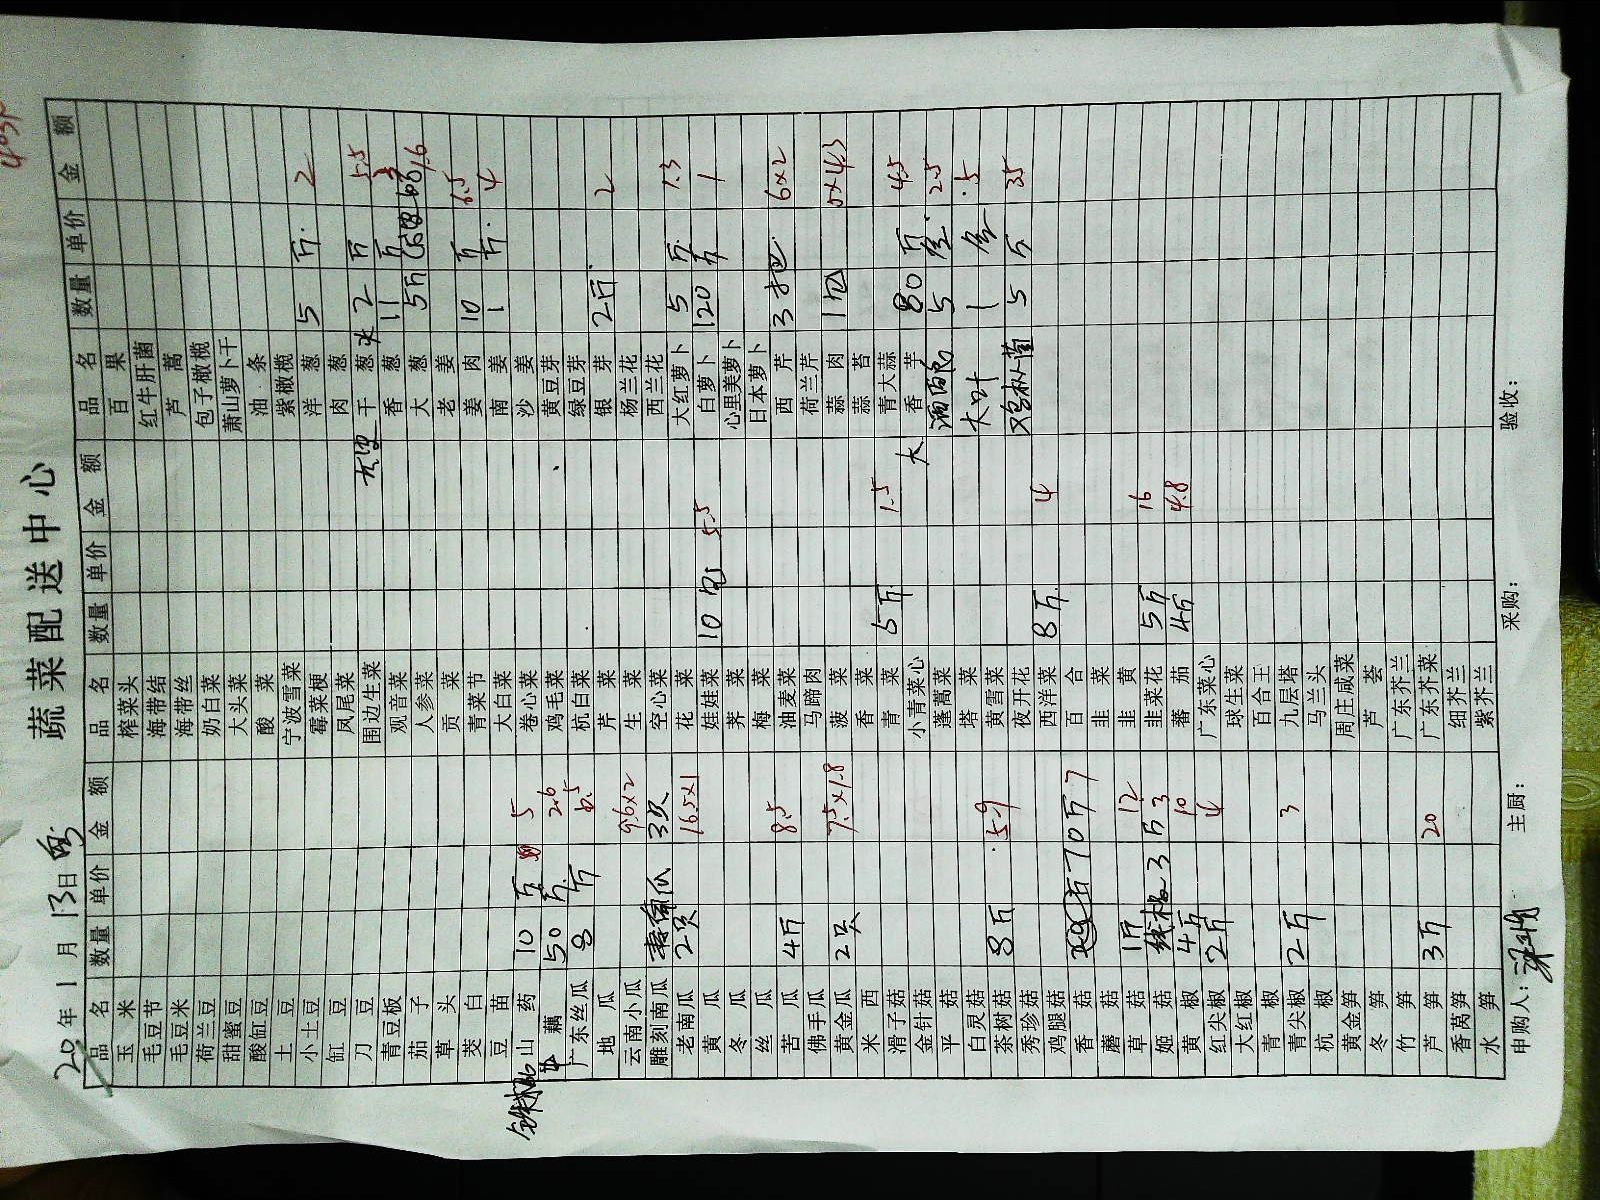 蔬菜配送中心
20 年 1 月 13 日
品名 数量 单价 金额 品名 数量 单价 金额 品名 数量 单价 金额
玉米 榨菜头 百果
毛豆节 海带结 红牛肝菌
毛豆米 海带丝 芦蒿
荷兰豆 奶白菜 包子橄榄
甜蜜豆 大头菜 萧山萝卜干
酸缸豆 酸菜 油条
土豆 宁波雪菜 紫橄榄
小土豆 霉菜梗 洋葱 5 斤 2
缸豆 凤尾菜 肉葱
刀豆 围边生菜 干葱 2 斤 5.5
青豆板 观音菜 香葱 11 斤 3
茄子 人参菜 大葱 5斤 1.6
草头 贡菜 老姜
茭白 青菜节 姜肉 10 斤 6.5
豆苗 大白菜 南姜 1 斤 4
山药 10 斤 5 卷心菜 沙姜
藕 50 斤 2.6 鸡毛菜 黄豆芽
广东丝瓜 8 斤 6.5 杭白菜 绿豆芽
地瓜 芹菜 银芽 2斤 2
云南小瓜 9.6×2 生菜 杨兰花
雕刻南瓜 空心菜 西兰花
老南瓜 2只 16.5×1 花菜 大红萝卜 5 斤 1.3
黄瓜 娃娃菜 10 包 5.5 白萝卜 120 斤 1
冬瓜 荠菜 心里美萝卜
丝瓜 梅菜 日本萝卜
苦瓜 4斤 8.5 油麦菜 西芹 3 把 6×2
佛手瓜 马蹄肉 荷兰芹
黄金瓜 2只 7.5×1.8 菠菜 蒜肉 1包 5×4.3
米西 香菜 蒜苔
滑子菇 青菜 5斤 1.5 青大蒜
金针菇 小青菜心 大 香芋 80 斤 4.5
平菇 蓬蒿菜 5 盒 2.5
白灵菇 塔菜 大叶 1 盒 .5
茶树菇 8斤 5.9 黄雪菜 5 斤 35
秀珍菇 夜开花
鸡腿菇 西洋菜 8斤 4
香菇 70斤 7 百合
蘑菇 韭菜
草菇 1斤 12 韭黄
姬菇 线椒 3斤 3 韭菜花 5斤 16
黄椒 4斤 10 蕃茄 4斤 4.8
红尖椒 2斤 4 广东菜心
大红椒 球生菜
青椒 百合王
青尖椒 2斤 3 九层塔
杭椒 马兰头
黄金笋 周庄咸菜
冬笋 芦荟
竹笋 广东芥兰
芦笋 3斤 20 广东芥菜
香莴笋 细芥兰
水笋 紫芥兰
申购人: 主厨: 采购: 验收: